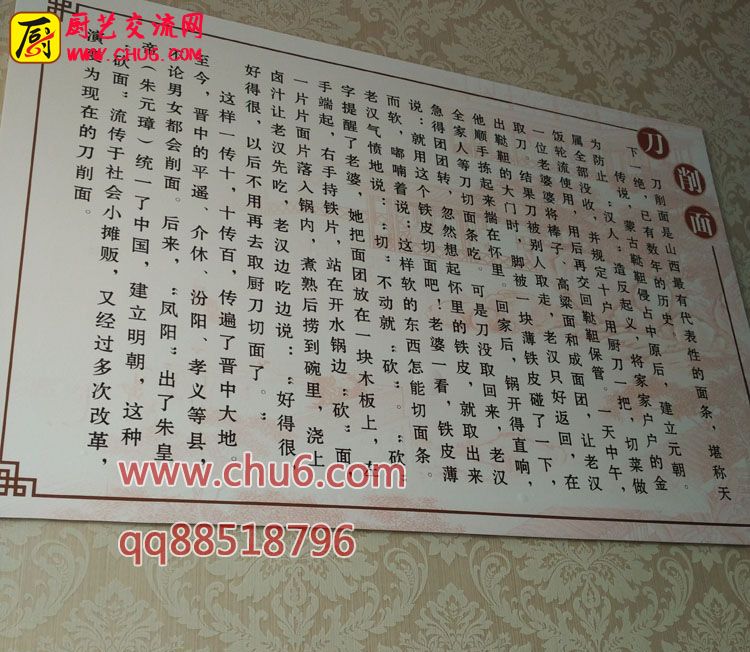 厨艺交流网
WWW.CHU6.COM
刀削面
刀削面是山西最有代表性的面条，堪称天
下一绝，已有数年的历史。
传说，蒙古鞑靼侵占中原后，建立元朝。
为防止“汉人”造反起义，将家家户户的金
属全部没收，并规定十户用厨刀一把，切菜做
饭轮流使用，用后再交回鞑靼保管。一天中午，
一位老婆婆将棒子、高粱面和成面团，让老汉
取刀。结果刀被别人取走，老汉只好返回，在
出鞑靼的大门时，脚被一块薄铁皮碰了一下，
他顺手拣起来揣在怀里。回家后，锅开得直响，
全家人等刀切面条吃。可是刀没取回来，老汉
急得团团转，忽然想起怀里的铁皮，就取出来
说：就用这个铁皮切面吧！老婆一看，铁皮薄
而软，嘟喃着说：这样软的东西怎能切面条。
老汉气愤地说：“切”不动就“砍”。“砍”
字提醒了老婆，她把面团放在一块木板上，左
手端起，右手持铁片，站在开水锅边“砍”面，
一片片面片落入锅内，煮熟后捞到碗里，浇上
卤汁让老汉先吃，老汉边吃边说：“好得很，
好得很，以后不用再去取厨刀切面了。”
这样一传十，十传百，传遍了晋中大地。
至今，晋中的平遥、介休、汾阳、孝义等县，
不论男女都会削面。后来，“凤阳”出了朱皇
帝（朱元璋）统一了中国，建立明朝，这种
“砍面”流传于社会小摊贩，又经过多次改革，
演变为现在的刀削面。
www.chu6.com
qq88518796